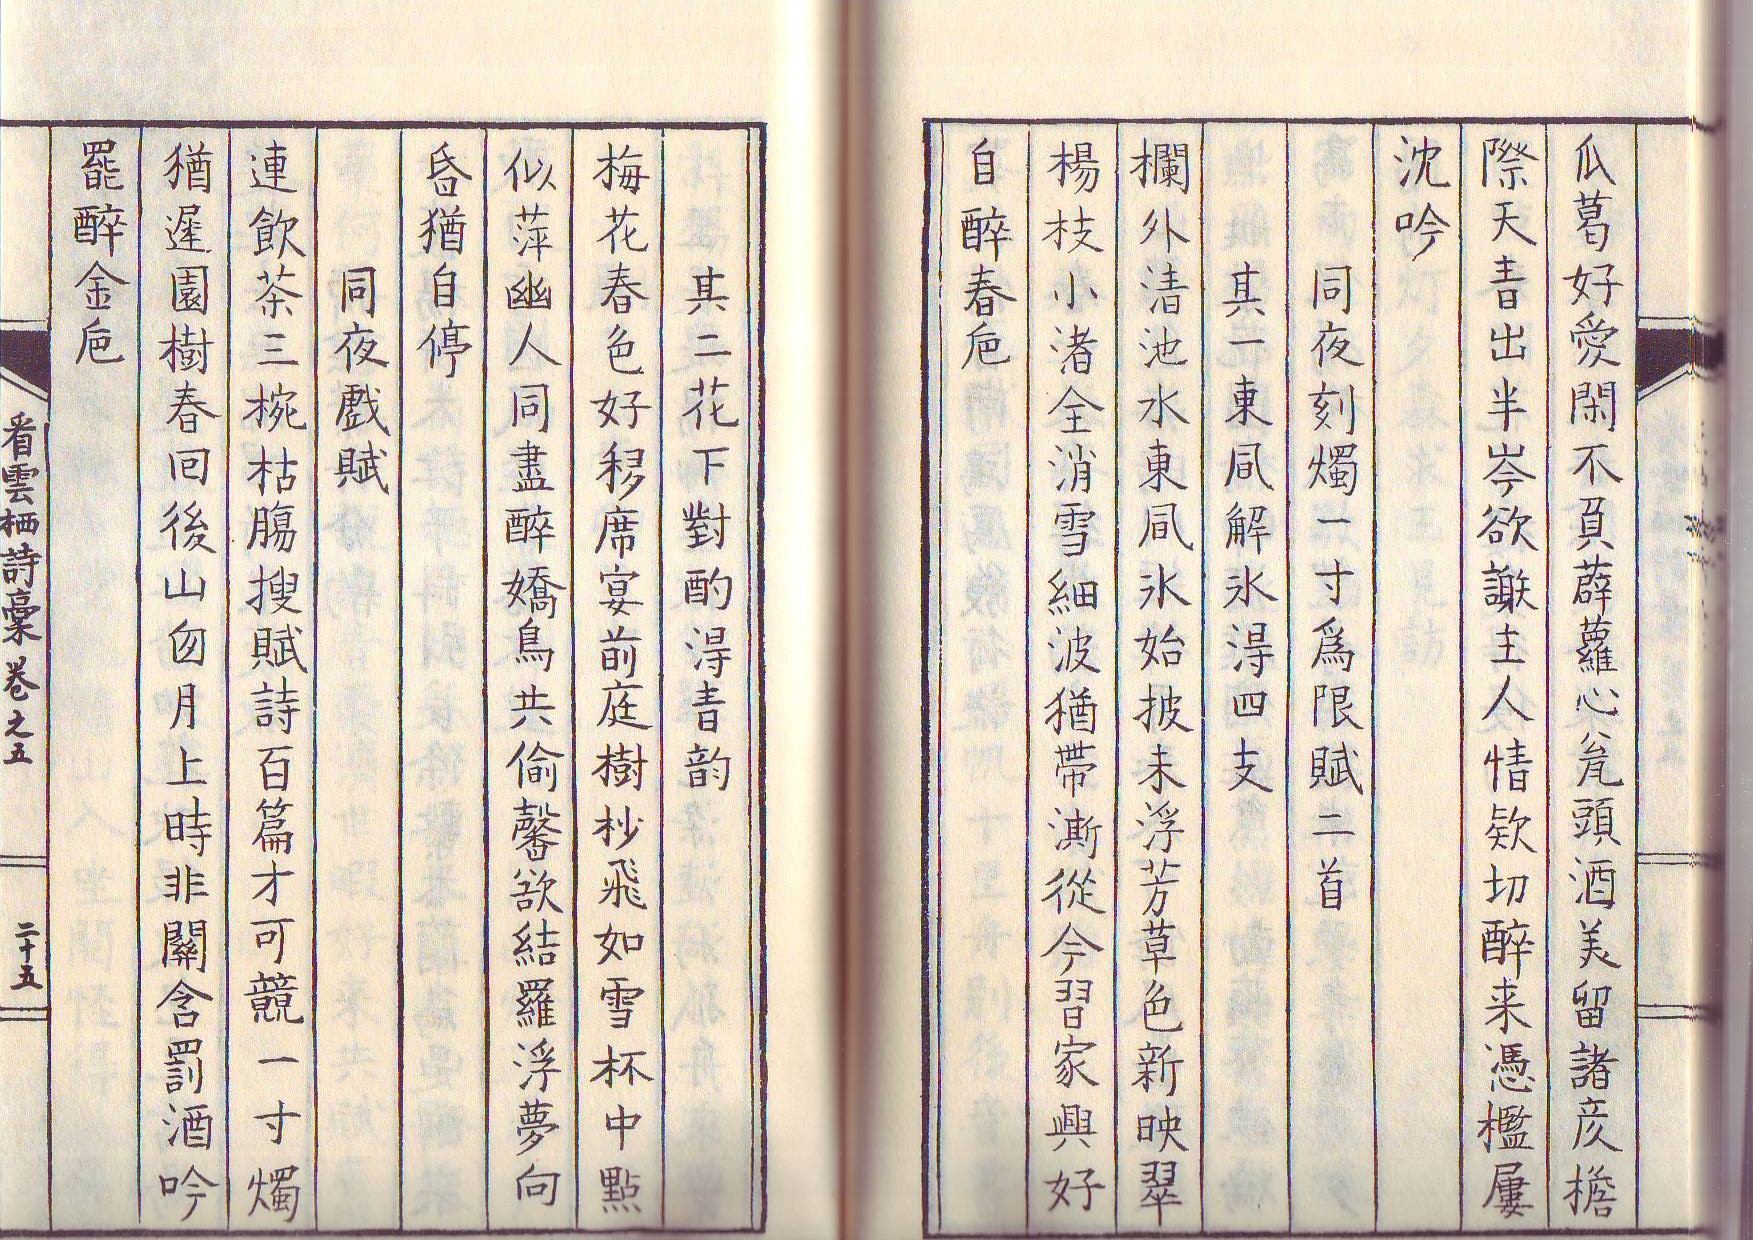 瓜葛好愛閑不負薜蘿心瓮頭酒美留諸彦檐
際天青出半岑欲謝主人情欵切醉来憑檻屢
沈吟
同夜刻燭一寸爲限賦二首
其一東凬解氷淂四支
欄外清池水東凬氷始披未浮芳草色新映翠
楊枝小渚全消雪細波猶帶澌從今習家興好
自醉春巵
其二花下對酌淂青韵
梅花春色好移席宴前庭樹杪飛如雪杯中點
似萍幽人同盡醉嬌鳥共偷馨欲結羅浮夢向
昏猶自停
同夜戲賦
連飲茶三椀枯腸搜賦詩百篇才可競一寸燭
猶遲園樹春回後山囱月上時非關含罰酒吟
罷醉金巵
看雲栖詩稾卷之五
二十五